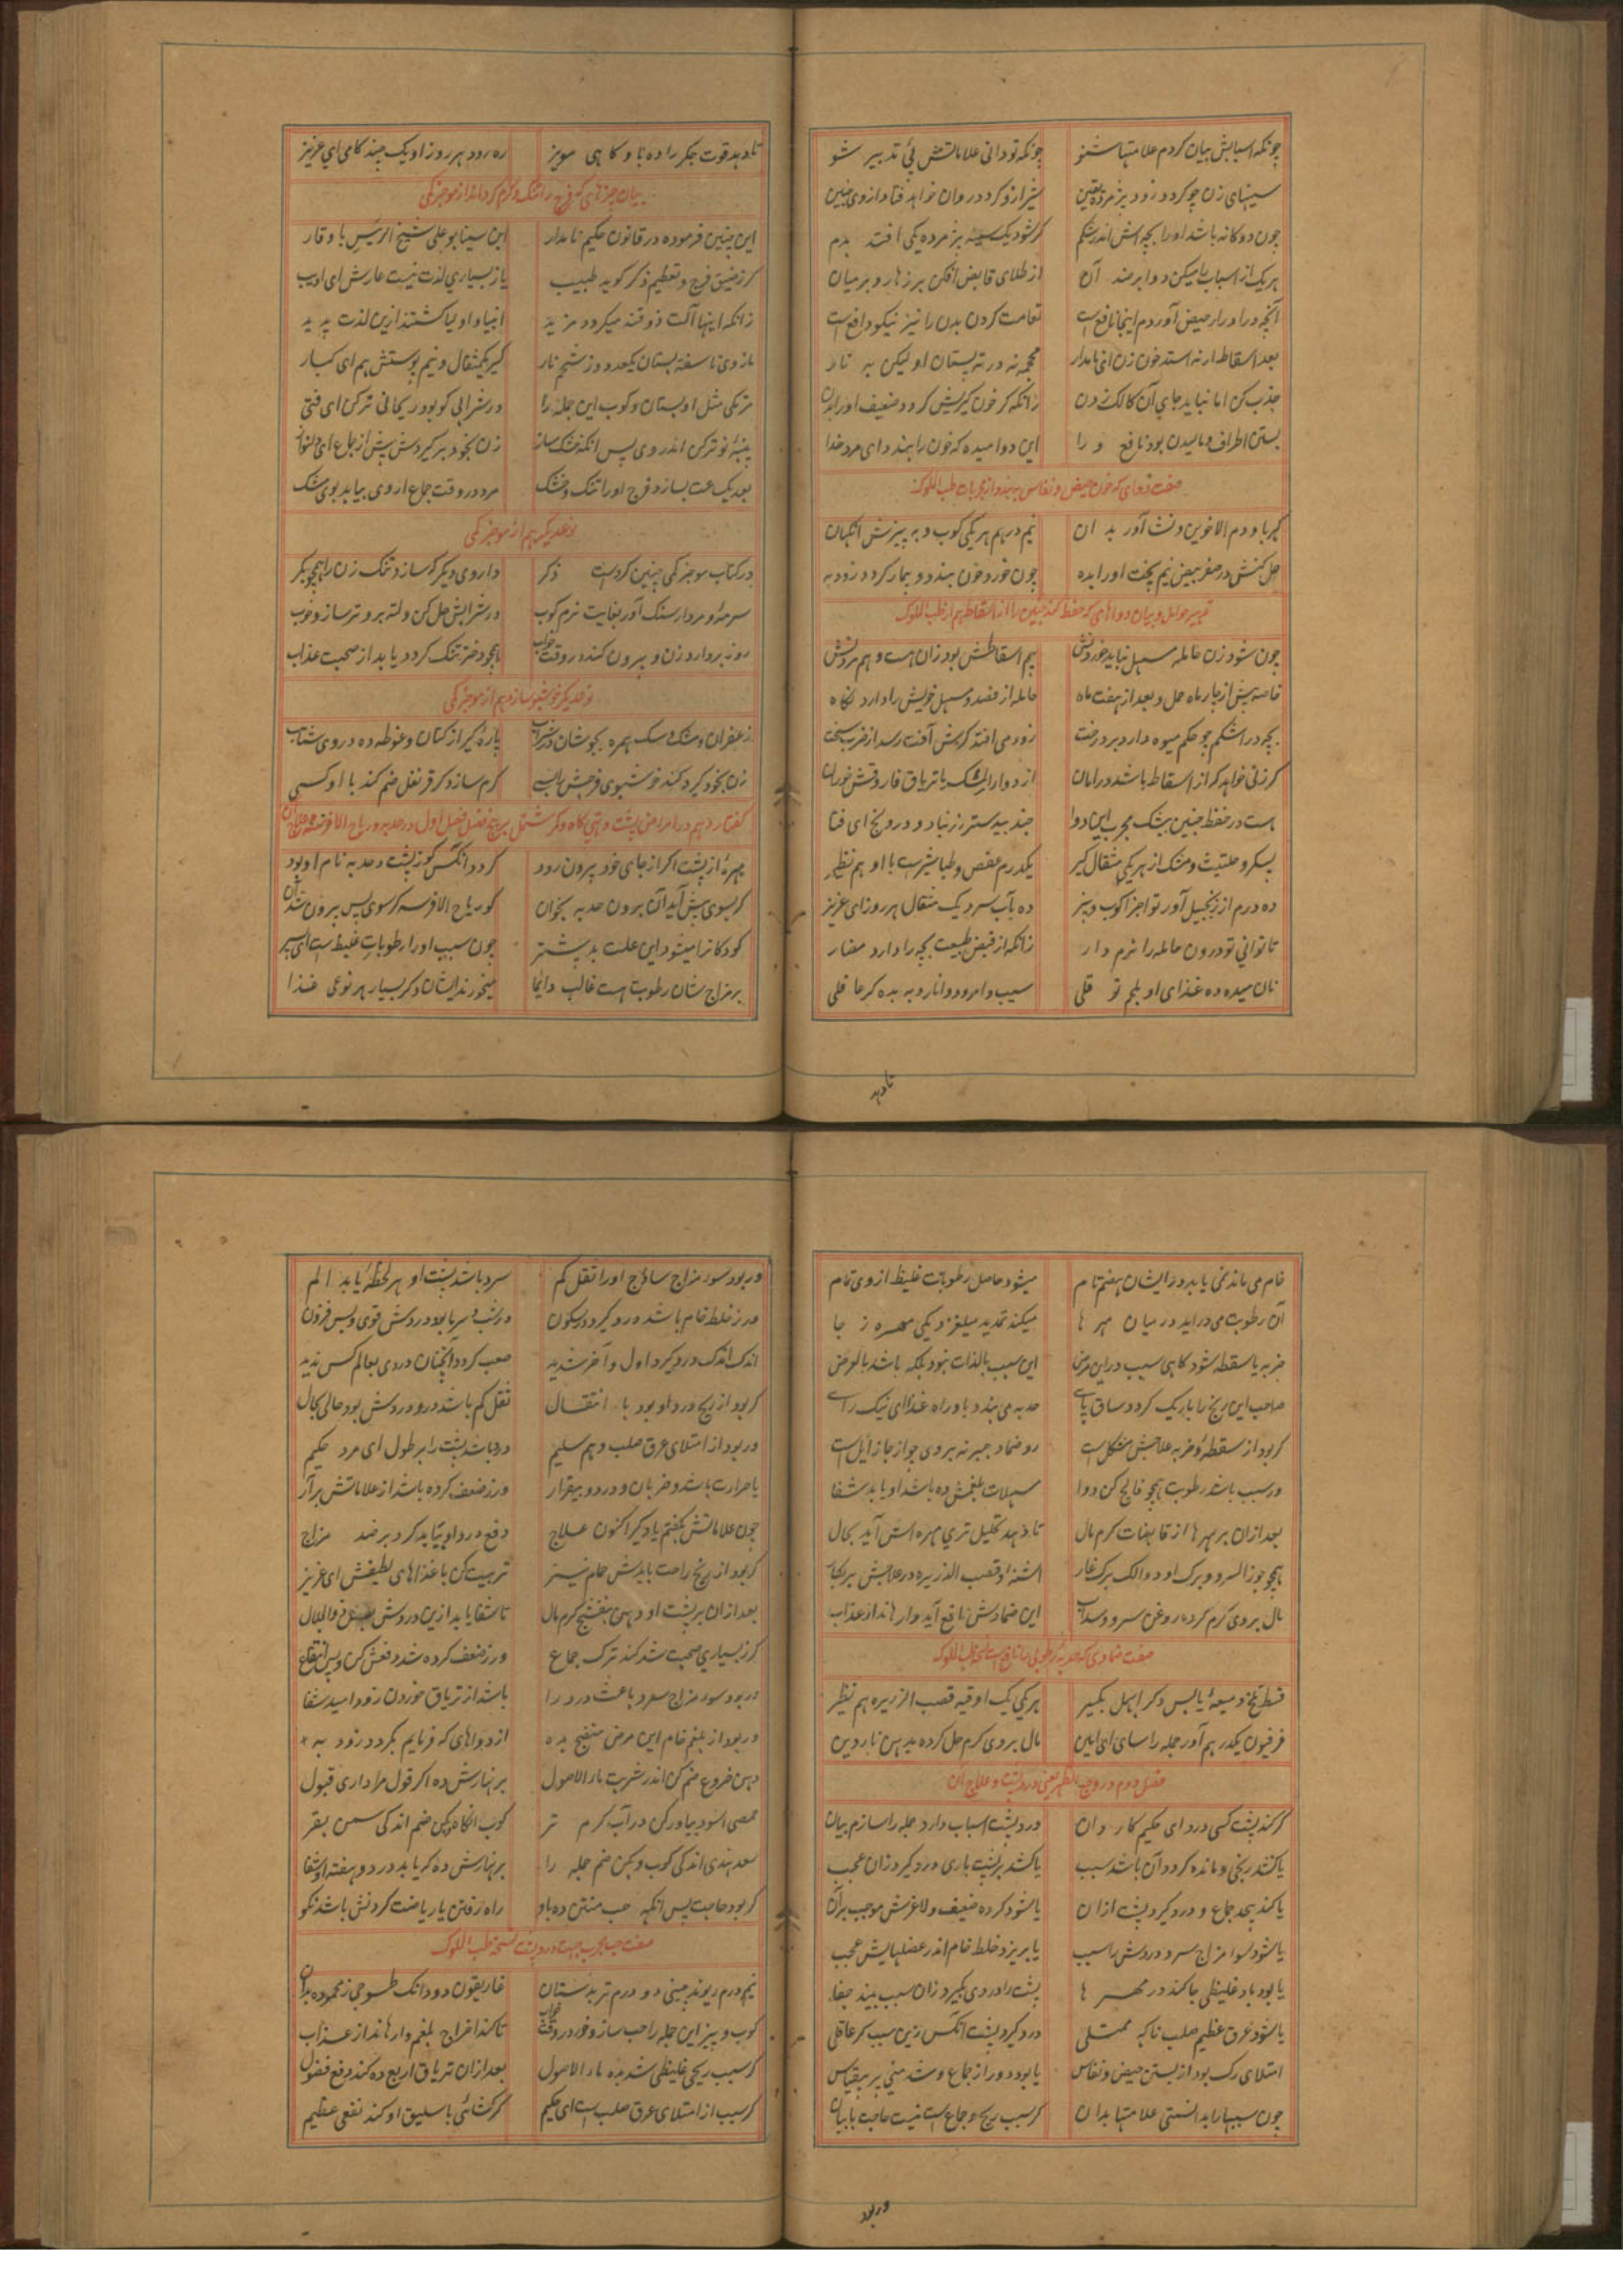 چونکه اسبابش بیان کردم علامتها شنو چونکه تو دانی علاماتش پئ تدبیر شو
سینهای زن چو کردد زود پژمرده یقین شیر ازو کردد روان خواهد فتاد از وی جنین
چون دوکانه باشد او را بچه اش اندر شکم کر شود یک سینه پژمرده یکی افتد بدم
هر یک از اسباب را میکن دوا بر ضد آن از طلای قابض افکن بر زهار و بر میان
آنچه در ادرار حیض آوردم اینجا نافع است تعامت کردن بدن را نیز نیکو دافع است
بعد اسقاط ار نه استد خون زن ای نامدار محجمه نه در ته پستان او لیکن بی نار
جذب کن اما نباید جای آن کالک زدن زانکه کر خون کیریش کردد ضعیف او را بدن
بستن اطراف و مالیدن بود نافع و را این دوا میده که خون را بندد ای مرد خدا
صفت دوای که خون حیض و نفاس ببندد از مجربات طب الملوک
کهربا و دم الاخوین و نشا آور بدان نیم درهم هر یکی کوب و به پیزش انکهان
حل کنش در صفر بیض نیم پخت او را بده چون خورد خون بندد و بیمار کردد زود به
تدبیر حوامل و بیان دواهای که حفظ کند جنین را از اسقاط هم از طب الملوک
چون شود زن حامله مسهل نباید خوردنش بیم اسقاطش بود زان هست و هم مردنش
خاصه پیش از چار ماه حمل و بعد از هفت ماه حامله از فصد و مسهل خویش را دارد نکاه
بچه در اشکم چو حکم میوه دارد بر درخت زود می افتد کرش آفت رسد از ضرب سخت
کر زنی خواهد که از اسقاط باشد در امان از دواء المشک یا تریاق فاروقش خوران
هست در حفظ جنین بیشک مجرب این دوا جند بیدستر زرنباد و درونج ای فتا
بسکر و حلتیت و مشک از هر یکی مثقال کیر یکدرم عفص و طباشیرست با او هم نظیر
ده درم از زنجبیل آور تو اجزا کوب و بیز ده بآب سرد یک مثقال هر روز ای عزیز
تا توانی تو درون حامله را نرم دار زانکه از قبض طبیعت بچه را دارد مضار
نان میده ده غذای او بلحم تو قلی سیب و امرود و انار و به بده کر عاقلی
تا دهد
تا دهد قوت جکر را ده تو کاهی مویز ره رود هر روز او یک چند کامی ای عزیز
بیان چیزهای که فرج را تنک و کرم کرداند از موجز کمی
این چنین فرموده در قانون حکیم نامدار ابن سینا بو علی شیخ الرئیس با وقار
کر زضیق فرج و تعظیم ذکر کوید طبیب یا ز بسیاری لذت نیست عارش ای ادیب
زانکه اینها آلت ذوقند میکردد مزید انبیا و اولیا کشتند ازین لذت پدید
مازوی نا سفته بستان یکعدد وز شحم نار کیر یکمثقال و نیم پوستش هم ای کبار
مرمکی مثل او بستان و کوب این جمله را در شرابی کو بود ریحانی تر کن ای فتی
پنبۀ نو تر کن اندر وی پس آنکه خشک ساز زن بخود بر کیردش پیش از جماع ای دلنواز
بعد یکساعت بسازد فرج او را تنک و خشک مرد در وقت جماع از وی بیابد بوی مشک
نوعدیکر هم از موجز کمی
در کتاب موجز کمی چنین کردست ذکر داروی دیکر که سازد تنک زن را همچو بکر
سرمه و مردار سنک آور بغایت نرم کوب در شرابش حل کن و لته برو تر ساز و خوب
روز بردارد زن و بیرون کند در وقت خواب همچو دختر تنک کردد یابد از صحبت عذاب
نوعدیکر خوشبو سازد هم از موجز کمی
زعفران و مشک و سک همره بجوشان در شراب پارۀ کیر از کتان و غوطه ده در وی شتاب
زن بخود کیرد کند خوشبوی فرجش را بسی کرم سازد کر قرنفل ضم کند با او کسی
کفتار دهم در امراض پشت و تهی کاه و کمر مشتمل بر پنج فصل فصل اول در حدبه و ریاح الافرسه و علاج آن
مهرۀ از پشت اکر از جای خود بیرون رود کردد انکس کوز پشت و حدبه نام او بود
کر بسوی پیش آید آن برون حدبه بخوان کو ریاح الافرسه کر سوی پس بیرون شد آن
کودکانرا میشود این علت بد بیشتر چون سبب او را رطوبات غلیظ است ای پسر
بر مزاج شان رطوبت هست غالب دایما میخورند ایشان دکر بسیار هر نوعی غذا
خام می ماند نمی یابد در ایشان هضم تام میشود حاصل رطوبات غلیظ از وی تمام
آن رطوبت می در اید در میان مهرها میکند تمدید میلغزد یکی مهره ز جا
ضربه یا سقطه شود کاهی سبب در این مرض این سبب بالذات نبود بلکه باشد بالعرض
صاحب این رنج را باریک کردد ساق پای حدبه می بندد باو راه غذای نیک رای
کر بود از سقطه و ضربه علاجش مشکل است رو ضماد جبر نه بر وی چو از جا زایل است
ور سبب باشد رطوبت همچو فالج کن دوا مسهلات بلغمش ده باشد او یابد شفا
بعد ازان بر مهرها از قابضات کرم مال تا دهد تحلیل تری مهره اش آید بحال
همچو جوز السرو و برک او و دالک برک غار اشنه و قصب الذریره در علاجش بر بکار
مال بر وی کرم کرده روغن سرو و سداب این ضمادش نافع آید وارهاند از عذاب
صفت ضمادی که حدبۀ رطوبی را نافع است از طب الملوک
قسط تلخ و میعۀ یابس دکر ابهل بکیر هر یکی یک اوقیه قصب الزریره هم نظیر
فرفیون یکدرهم آور جمله را سای ای امین مال بر وی کرم حل کرده بدهن ناردین
فصل دوم در وجع الظهر یعنی درد پشت و علاج آن
کر کند پشت کسی درد ای حکیم کاردان درد پشت اسباب دارد جمله را سازم بیان
یا کشد رنجی و مانده کردد آن باشد سبب یا کشد بر پشت باری درد کیرد زان عجب
یا کند بیحد جماع و درد کیرد پشت ازان یا شود کرده ضعیف و لاغرش موجب بران
یا شود سوء مزاج سرد دردش را سبب یا بریزد خلط خام اندر عضلهایش عجب
یا بود باد غلیظی جا کند در مهرها پشت را دردی بکیرد زان سبب بیند جفا
یا شود عرق عظیم صلب ناکه ممتلی درد کیرد پشت انکس زین سبب کر عاقلی
امتلای رک بود از بستن حیض و نفاس یا بود دور از جماع و شد منی پر بیقیاس
چون سببها را بدانستی علامتها بدان کر سبب رنج و جماع است نیست حاجت با بیان
ور بود
ور بود سوء مزاج ساذج او را ثقل کم سرد باشد پشت او هر لحظه یابد الم
ور ز خلط خام باشد درد کیرد در سکون در شب و سرما بود دردش قوی و بس فزون
اندک اندک درد کیرد اول و آخر شدید صعب کردد آنچنان دردی بعالم کس ندید
کر بود از ریح درد او بود با انتقال ثقل کم باشد درو دردش بود حالی بحال
ور بود از امتلای عرق صلب و هم سلیم درد باشد پشت را بر طول ای مرد حکیم
با حرارت باشد و ضربان و درد و بیقرار ور ز ضعف کرده باشد از علاماتش برآر
چون علاماتش بکفتم یاد کیر اکنون علاج دفع درد او بباید کرد بر ضد مزاج
کر بود از رنج راحت بایدش حمام نیز تربیت کن با غذاهای لطیفش ای عزیز
بعد ازان بر پشت او دهن بنفشج کرم مال تا شفا یابد ازین دردش
کر ز بسیاری صحبت شد کند ترک جماع ور ز ضعف کرده شد دفعش کن و بین انتفاع
ور بود سوء مزاج سرد باعث درد را باشد از تریاق خوردن زود امید شفا
ور بود از بلغم خام این مرض منضج بده از دواهای که فرمایم بکردد زود به
دهن خروع ضم کن اندر شربت ماء الاصول بر نهارش ده اکر قول مرا داری قبول
حمصی اسود بیاور کن در آب کرم تر کوب انکاه و بکن ضم اندکی سمن بقر
سعد هندی اندکی کوب و بکن ضم جمله را بر نهارش ده که یابد در دو هفته او شفا
کر بود حاجت پس انکه حب منتن ده باو راه رفتن یا ریاضت کردنش باشد نکو
صفت حب مجرب جهت درد پشت نسخه طب الملوک
نیم درم ریوند چینی دو درم تربد ستان غاریقون دو دانک طسوجی ز محموده بدان
کوب و بیز این جمله را حب ساز و خور در وقت خواب تا کند اخراج بلغم وارهاند از عذاب
کر سبب ریحی غلیظی شد بده ماء الاصول بعد ازان تریاق اربع ده کند دفع فضول
کر سبب از امتلای عرق صلب است ای حکیم کر کشائی باسلیق او کند نفعی عظیم